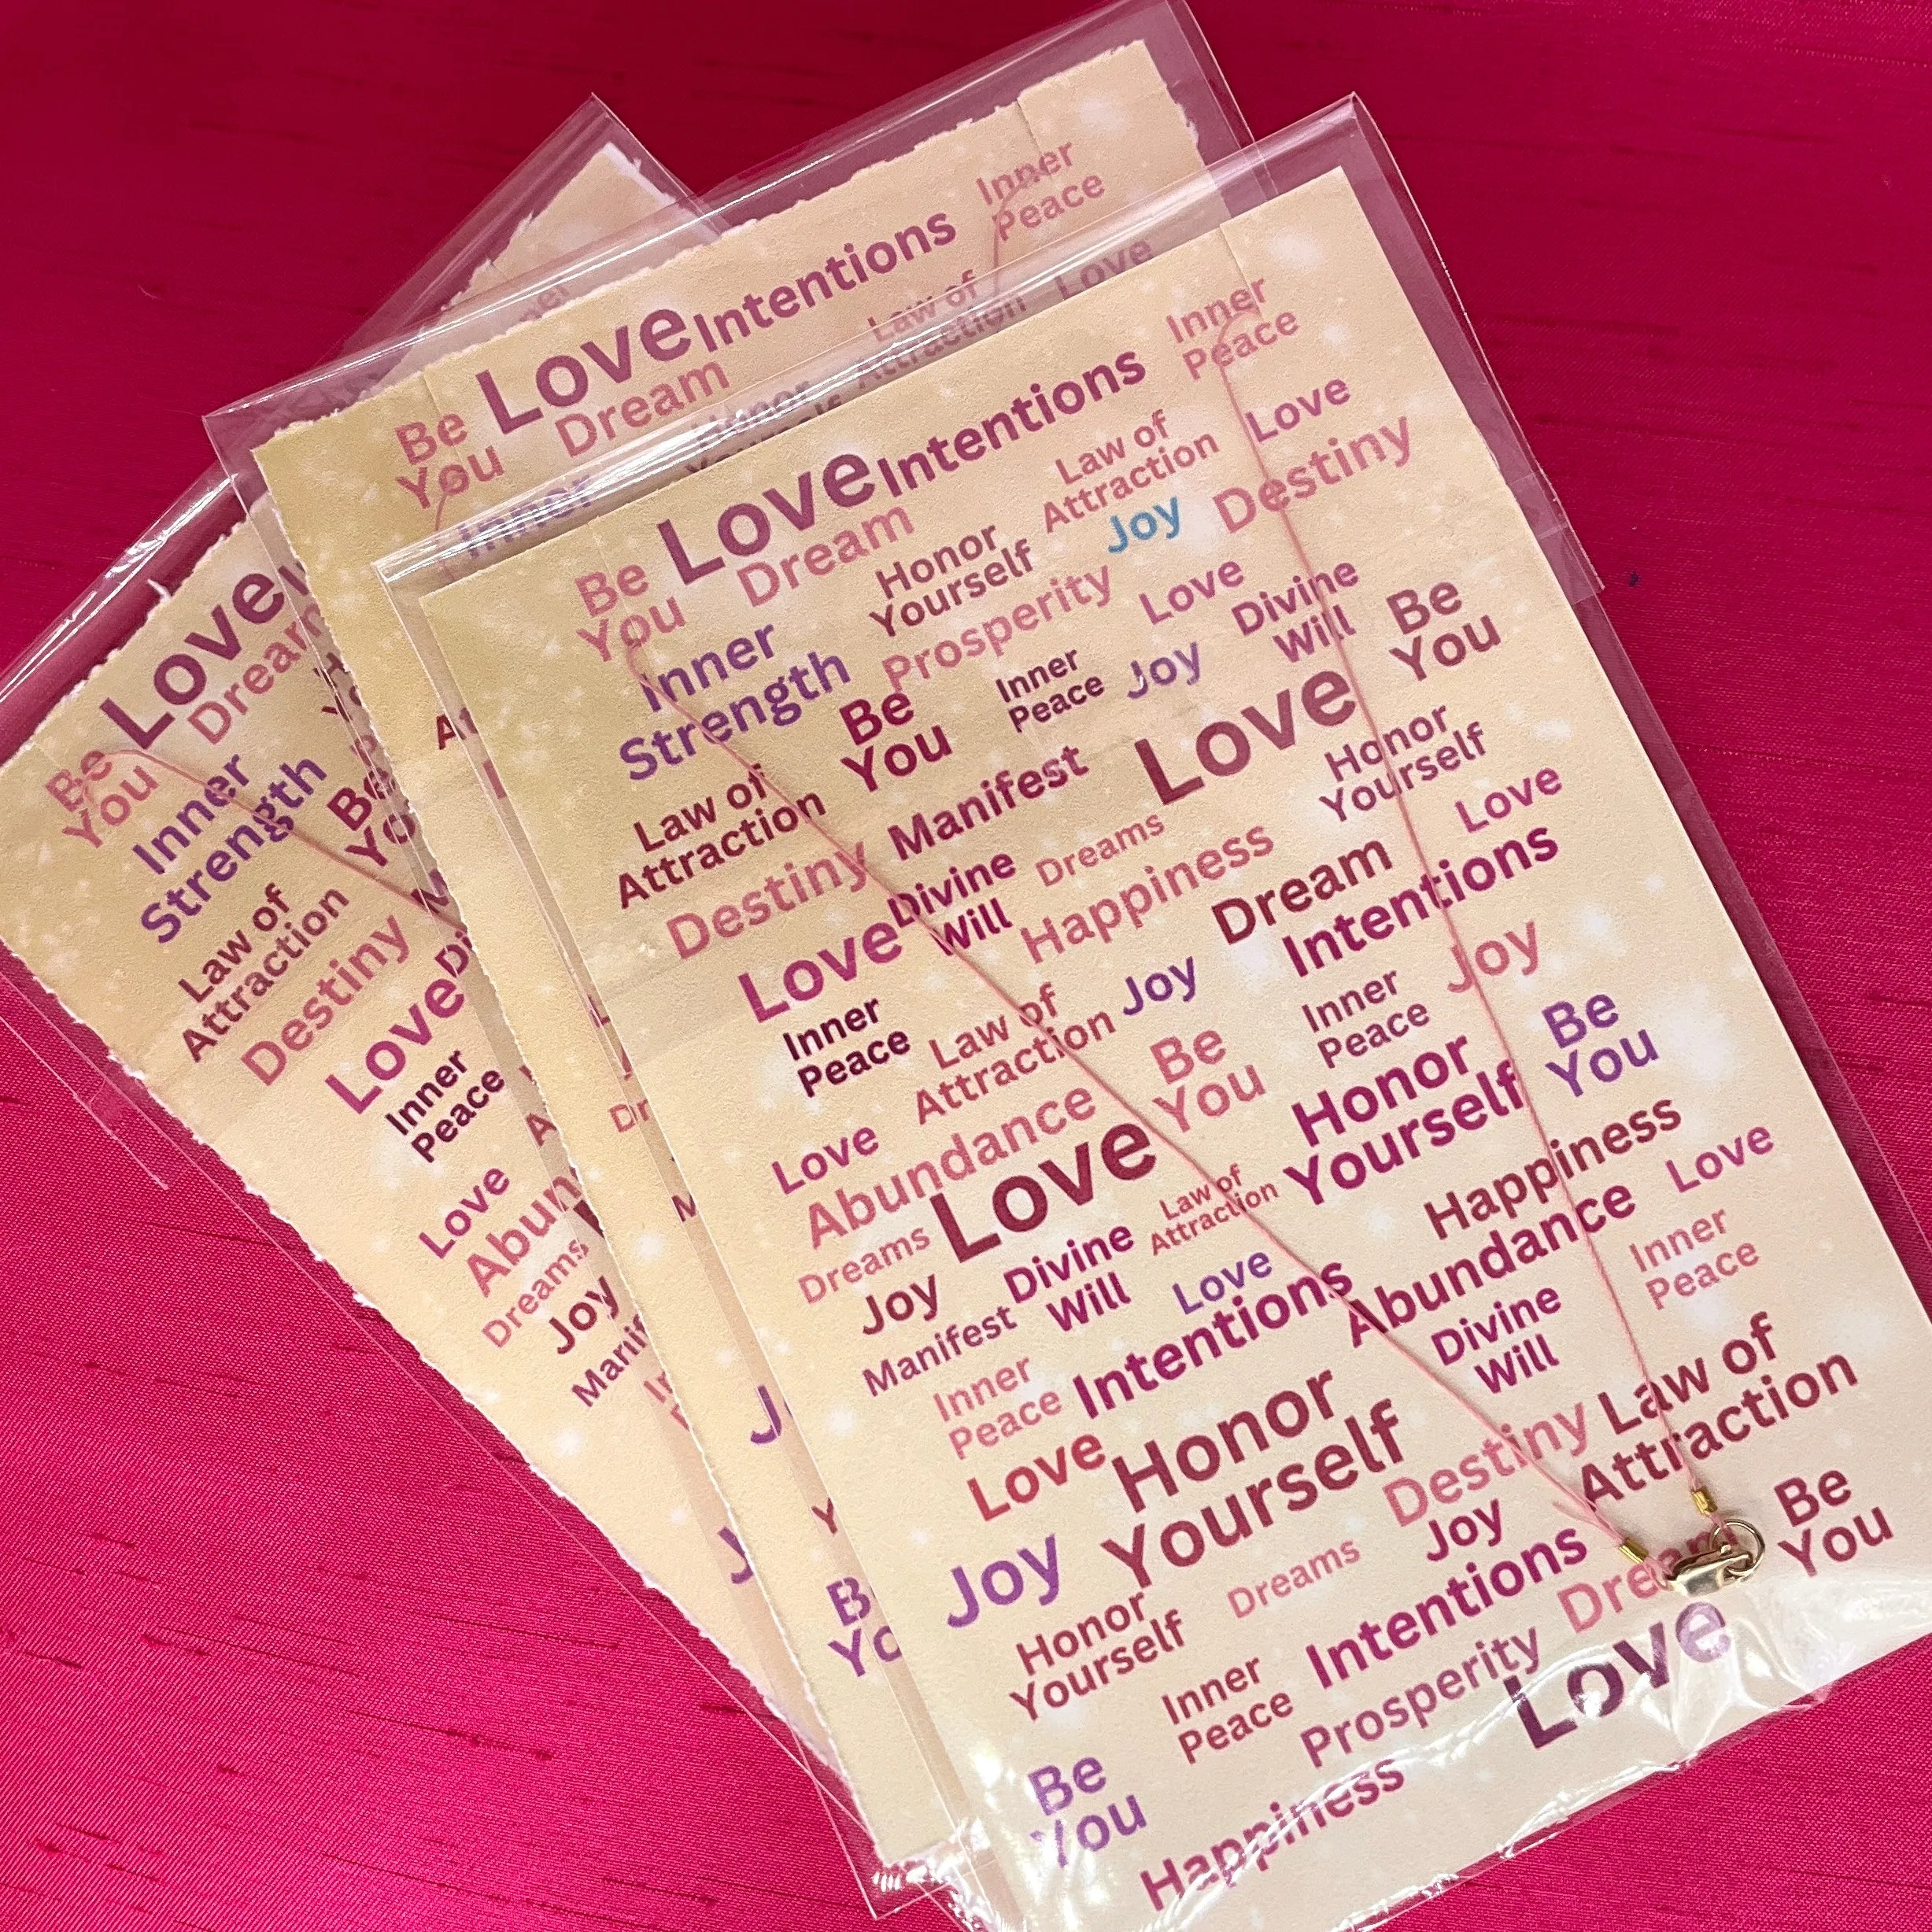 Inner
Peace
Love Intentions
Be
You
Dream
Law of
Attraction
Love
Honor
Inner
Love
Dream
Be
You
Inner
Strength
Law of
Attraction
Destiny
Love
Inner
Peace
Love
Dreams
Joy
Inner
Peace
Love Intentions
Be
You
Dream
Law of
Attraction
Love
Honor
Yourself
Joy
Destiny
Inner
Strength
Prosperity
Love
Divine
Will
Be
You
Be
You
Inner
Peace
Joy
Law of
Attraction
Manifest
Love
Honor
Yourself
Destiny
Divine
Will
Dreams
Happiness
Dream
Love
Love
Intentions
Inner
Peace
Law of
Attraction
Joy
Inner
Peace
Joy
Love
Abundance
Be
You
Honor
Yourself
Be
You
Dreams
Love
Law of
Attraction
Happiness
Love
Joy
Divine
Will
Love
Abundance
Inner
Peace
Manifest
Inner
Peace
Intentions
Divine
Will
Love
Honor
Yourself
Destiny
Law of
Attraction
Joy
Dreams
Joy
Be
You
Honor
Yourself
Intentions
Inner
Peace
Prosperity
Love
Be
You
Happiness